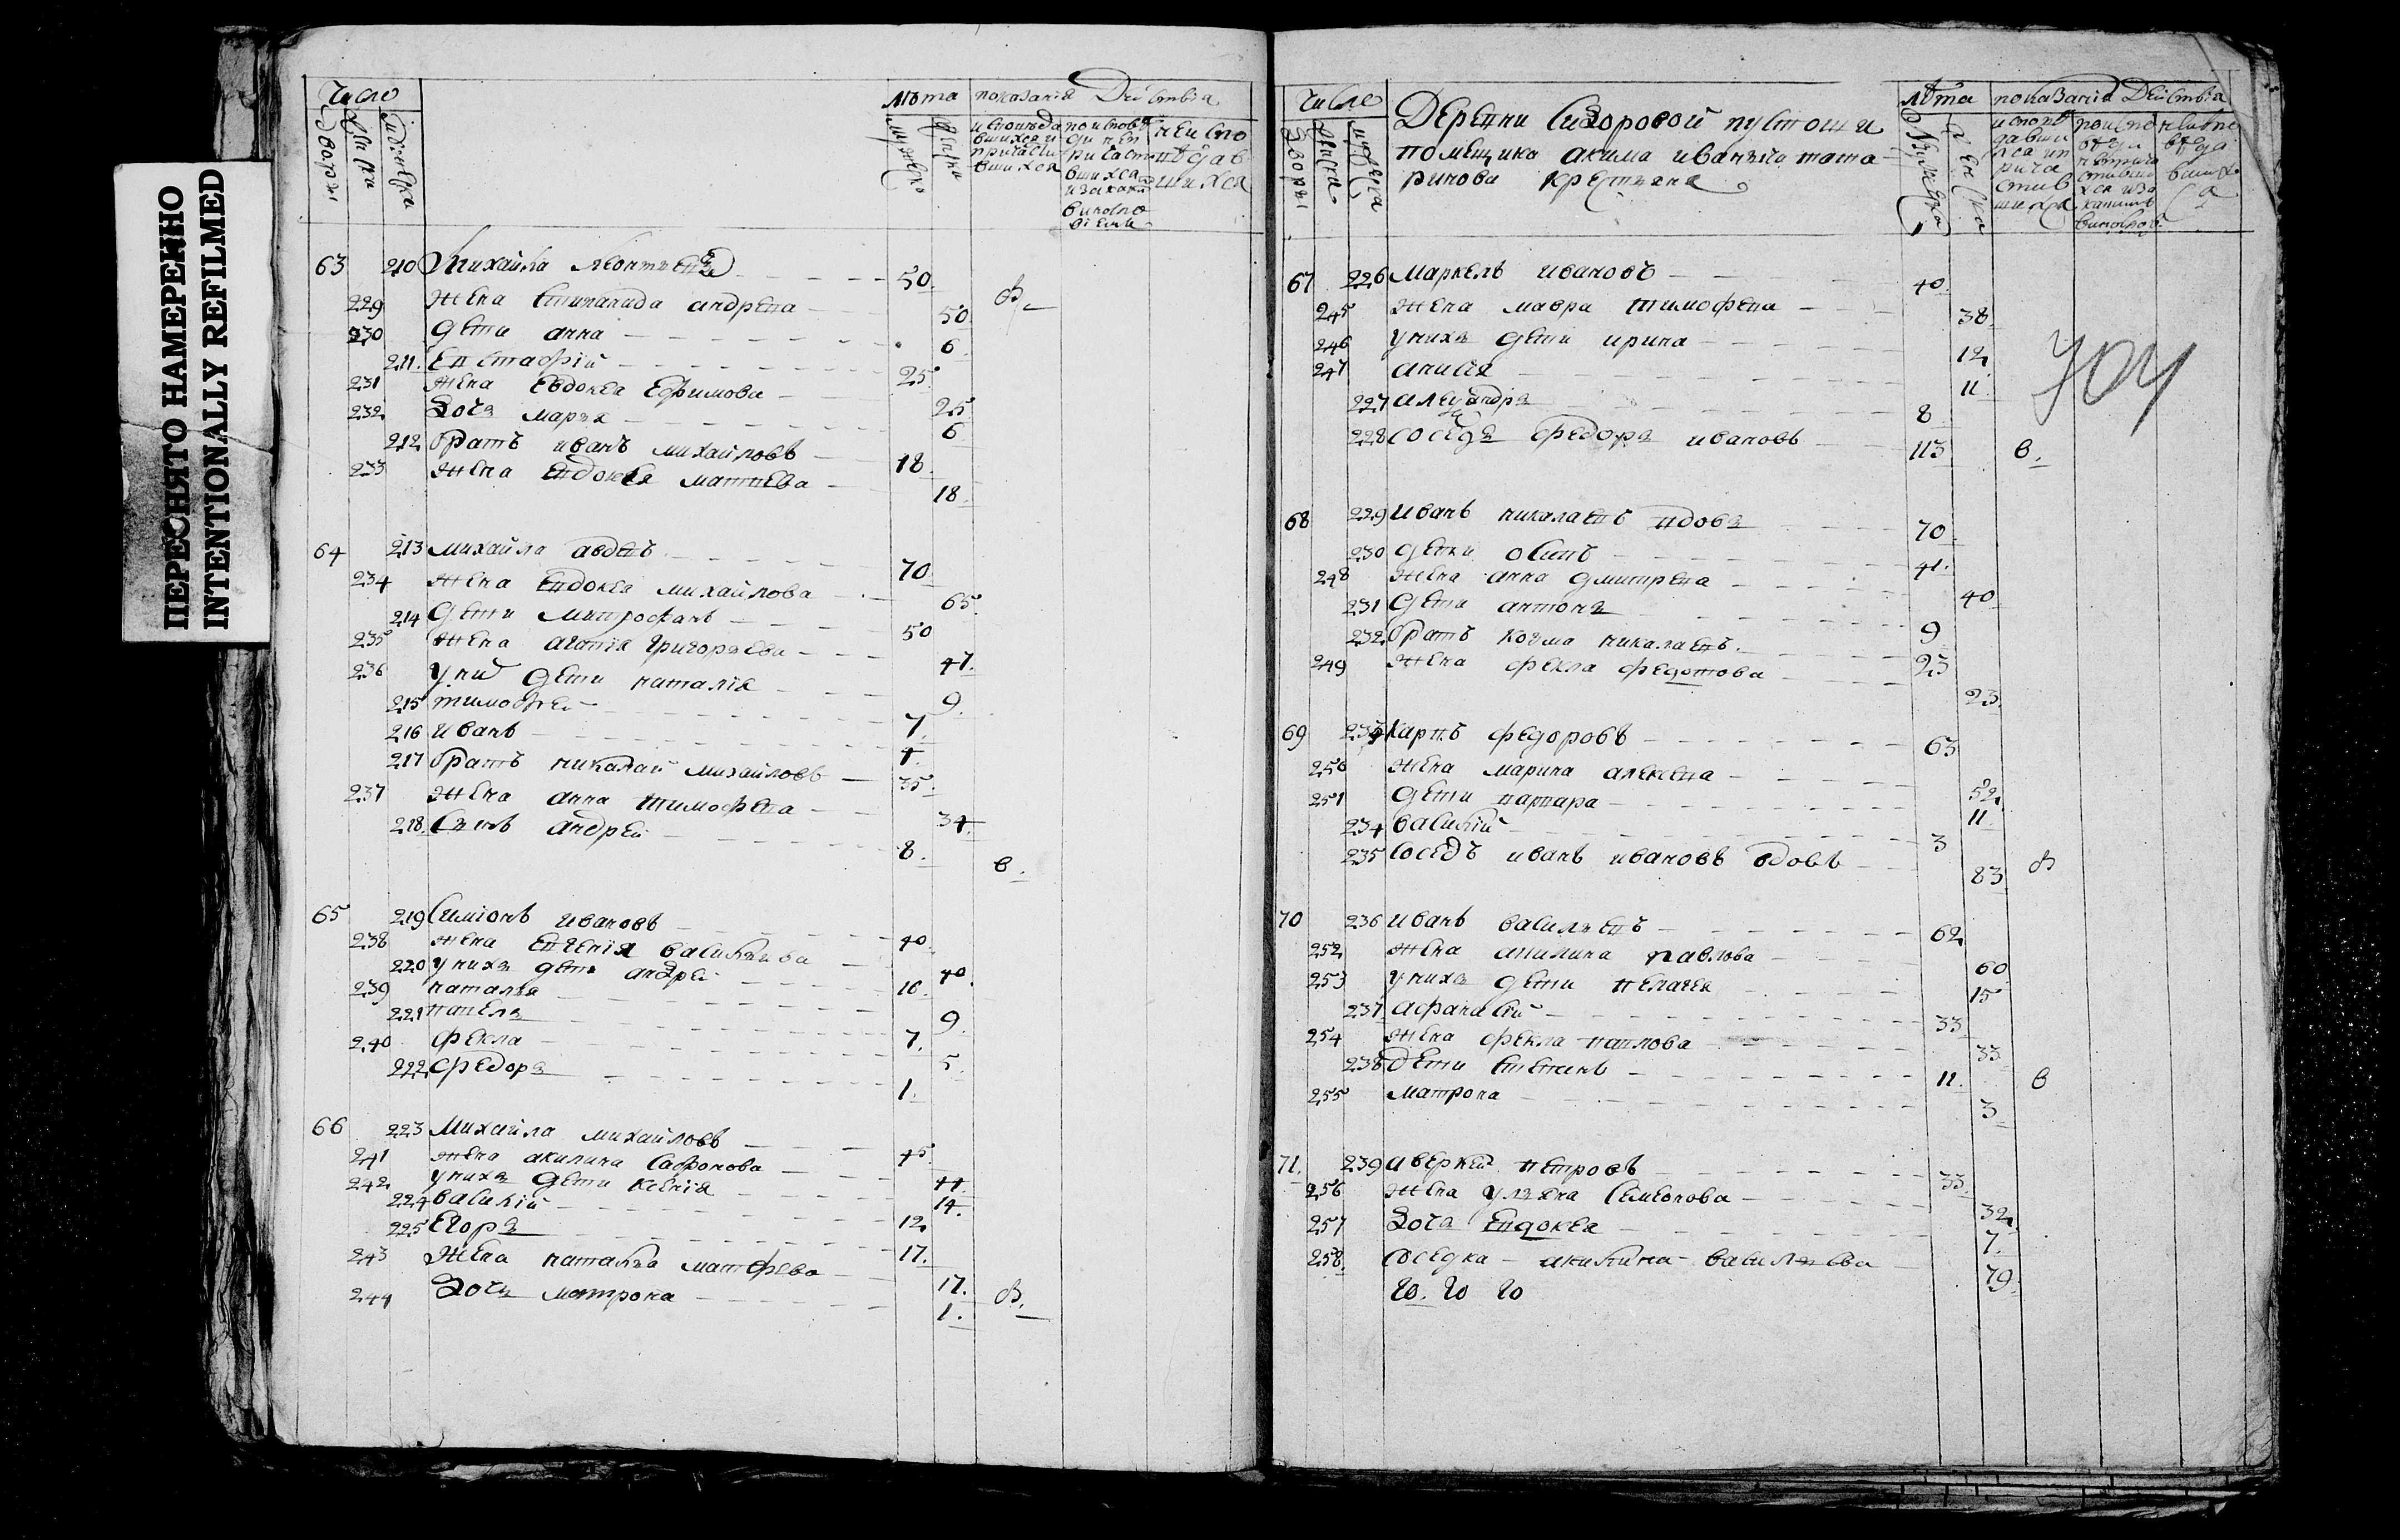 ПЕРЕСНЯТО НАМЕРЕННО
INTENTIONALLY REFILMED
Число
лѣта показанія Действія
63 210 Михайла Леонтьевъ 50
229 жена Степанида андрева 50
230 дети анна 6
211 Евстафій 25
231 жена Евдокеа Ефимова 25
232 Дочь марья 6
212 братъ иванъ михайловъ 18
233 жена Евдокея матвева 18
64 213 михайла авдевъ 70
234 жена Евдокеа михайлова 65
214 Дети митрофанъ 50
235 жена агапія григорьева 47
236 у них дети наталія 9
215 тимофеи 7
216 иванъ 4
217 братъ николай михайловъ 35
237 жена анна тимофева 34
218 Сынъ андреи 8 в
65 219 Симіонъ ивановъ 40
238 жена Евгенія васильева 40
220 у нихъ дети андреи 10
239 наталья 9
221 павелъ 7
240 фекла 5
222 федоръ 1
66 223 Михаила михайловъ 45
241 жена акилина Сафонова 44
242 у нихъ дети ксенія 14
224 василій 12
225 Егоръ 17
243 жена наталья матфева 17
244 Дочь матрона 1
Число
Деревни Сидоровой пустоши
помещика акима иваныча тата
ринова крестьяна
лѣта показанія Действія
67 226 маркелъ ивановъ 40
245 жена мавра тимофева 38
246 у нихъ дети ирина 12
247 анисія 11
227 алеѯандръ 8
228 соседъ федоръ ивановъ 113 в
704
68 229 иванъ николаевъ вдовъ 70
230 дети осипъ 41
248 жена анна дмитрева 40
231 дети антонъ 9
232 братъ козма николаевъ 23
249 жена фекла федотова 23
69 233 Карпъ федоровъ 63
250 жена марина алексева 52
251 дети варвара 11
234 василій 3
235 соседъ иванъ ивановъ вдовъ 83
70 236 иванъ васильевъ 62
252 жена акилина павлова 60
253 у нихъ дети пелагея 15
237 афанасій 33
254 жена фекла павлова 33
238 дети степанъ 11 в
255 матрона 3
71 239 аверкеи петровъ 33
256 жена ульяна Семенова 32
257 Дочь Евдокея 7
258 соседка акилина васильева 79